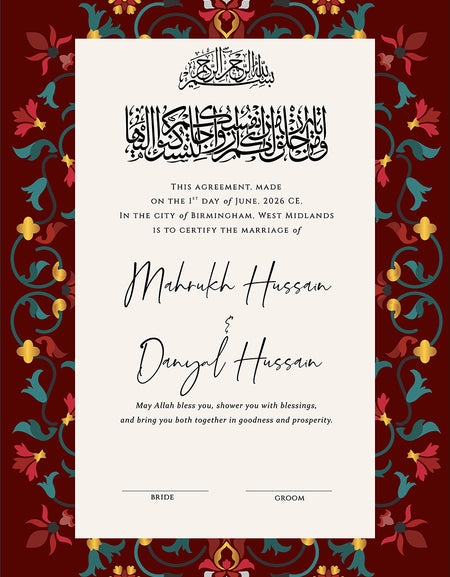 بسم الله الرحمن الرحيم
ومن آياته أن خلق لكم من أنفسكم أزواجا لتسكنوا إليها
This agreement, made
on the 1st day of June, 2026 CE,
In the city of Birmingham, West Midlands
is to certify the marriage of
Mahrukh Hussain
&
Danyal Hussain
May Allah bless you, shower you with blessings,
and bring you both together in goodness and prosperity.
BRIDE
GROOM